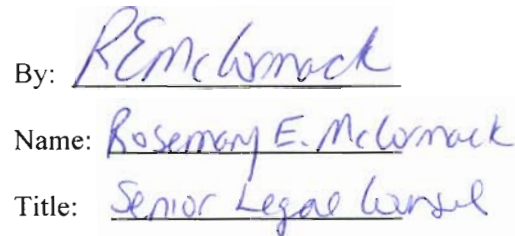 By: REMcCormack
Name: Rosemary E. McCormack
Title: Senior Legal Counsel